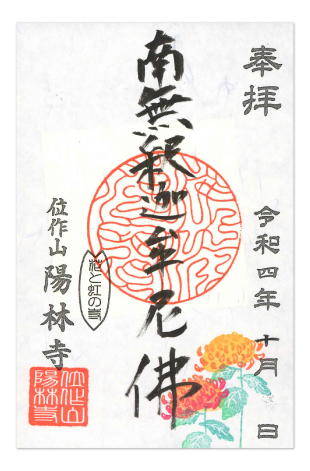 奉拝
令和四年十月 日
南無釈迦牟尼佛
花と虹の寺
位作山
陽林寺
位作山
陽林寺